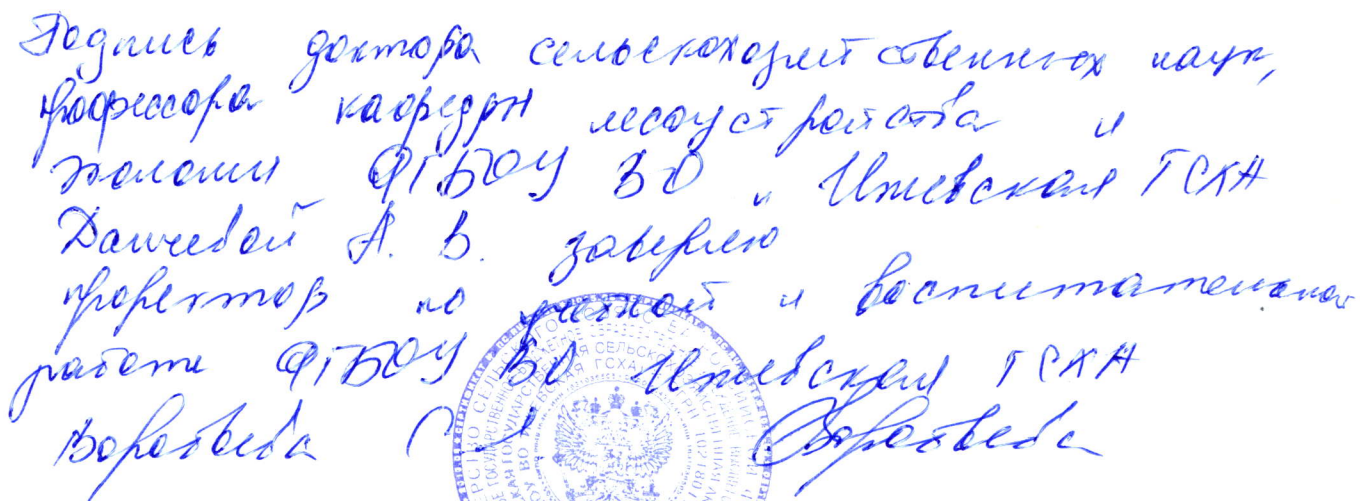 Подпись доктора сельскохозяйственных наук,
профессора кафедры лесоустройства и
экологии ФГБОУ ВО Ижевская ГСХА
Данчевой А. В. заверяю
проректор по учебной и воспитательной
работе ФГБОУ ВО Ижевская ГСХА
Воробьева Воробьева